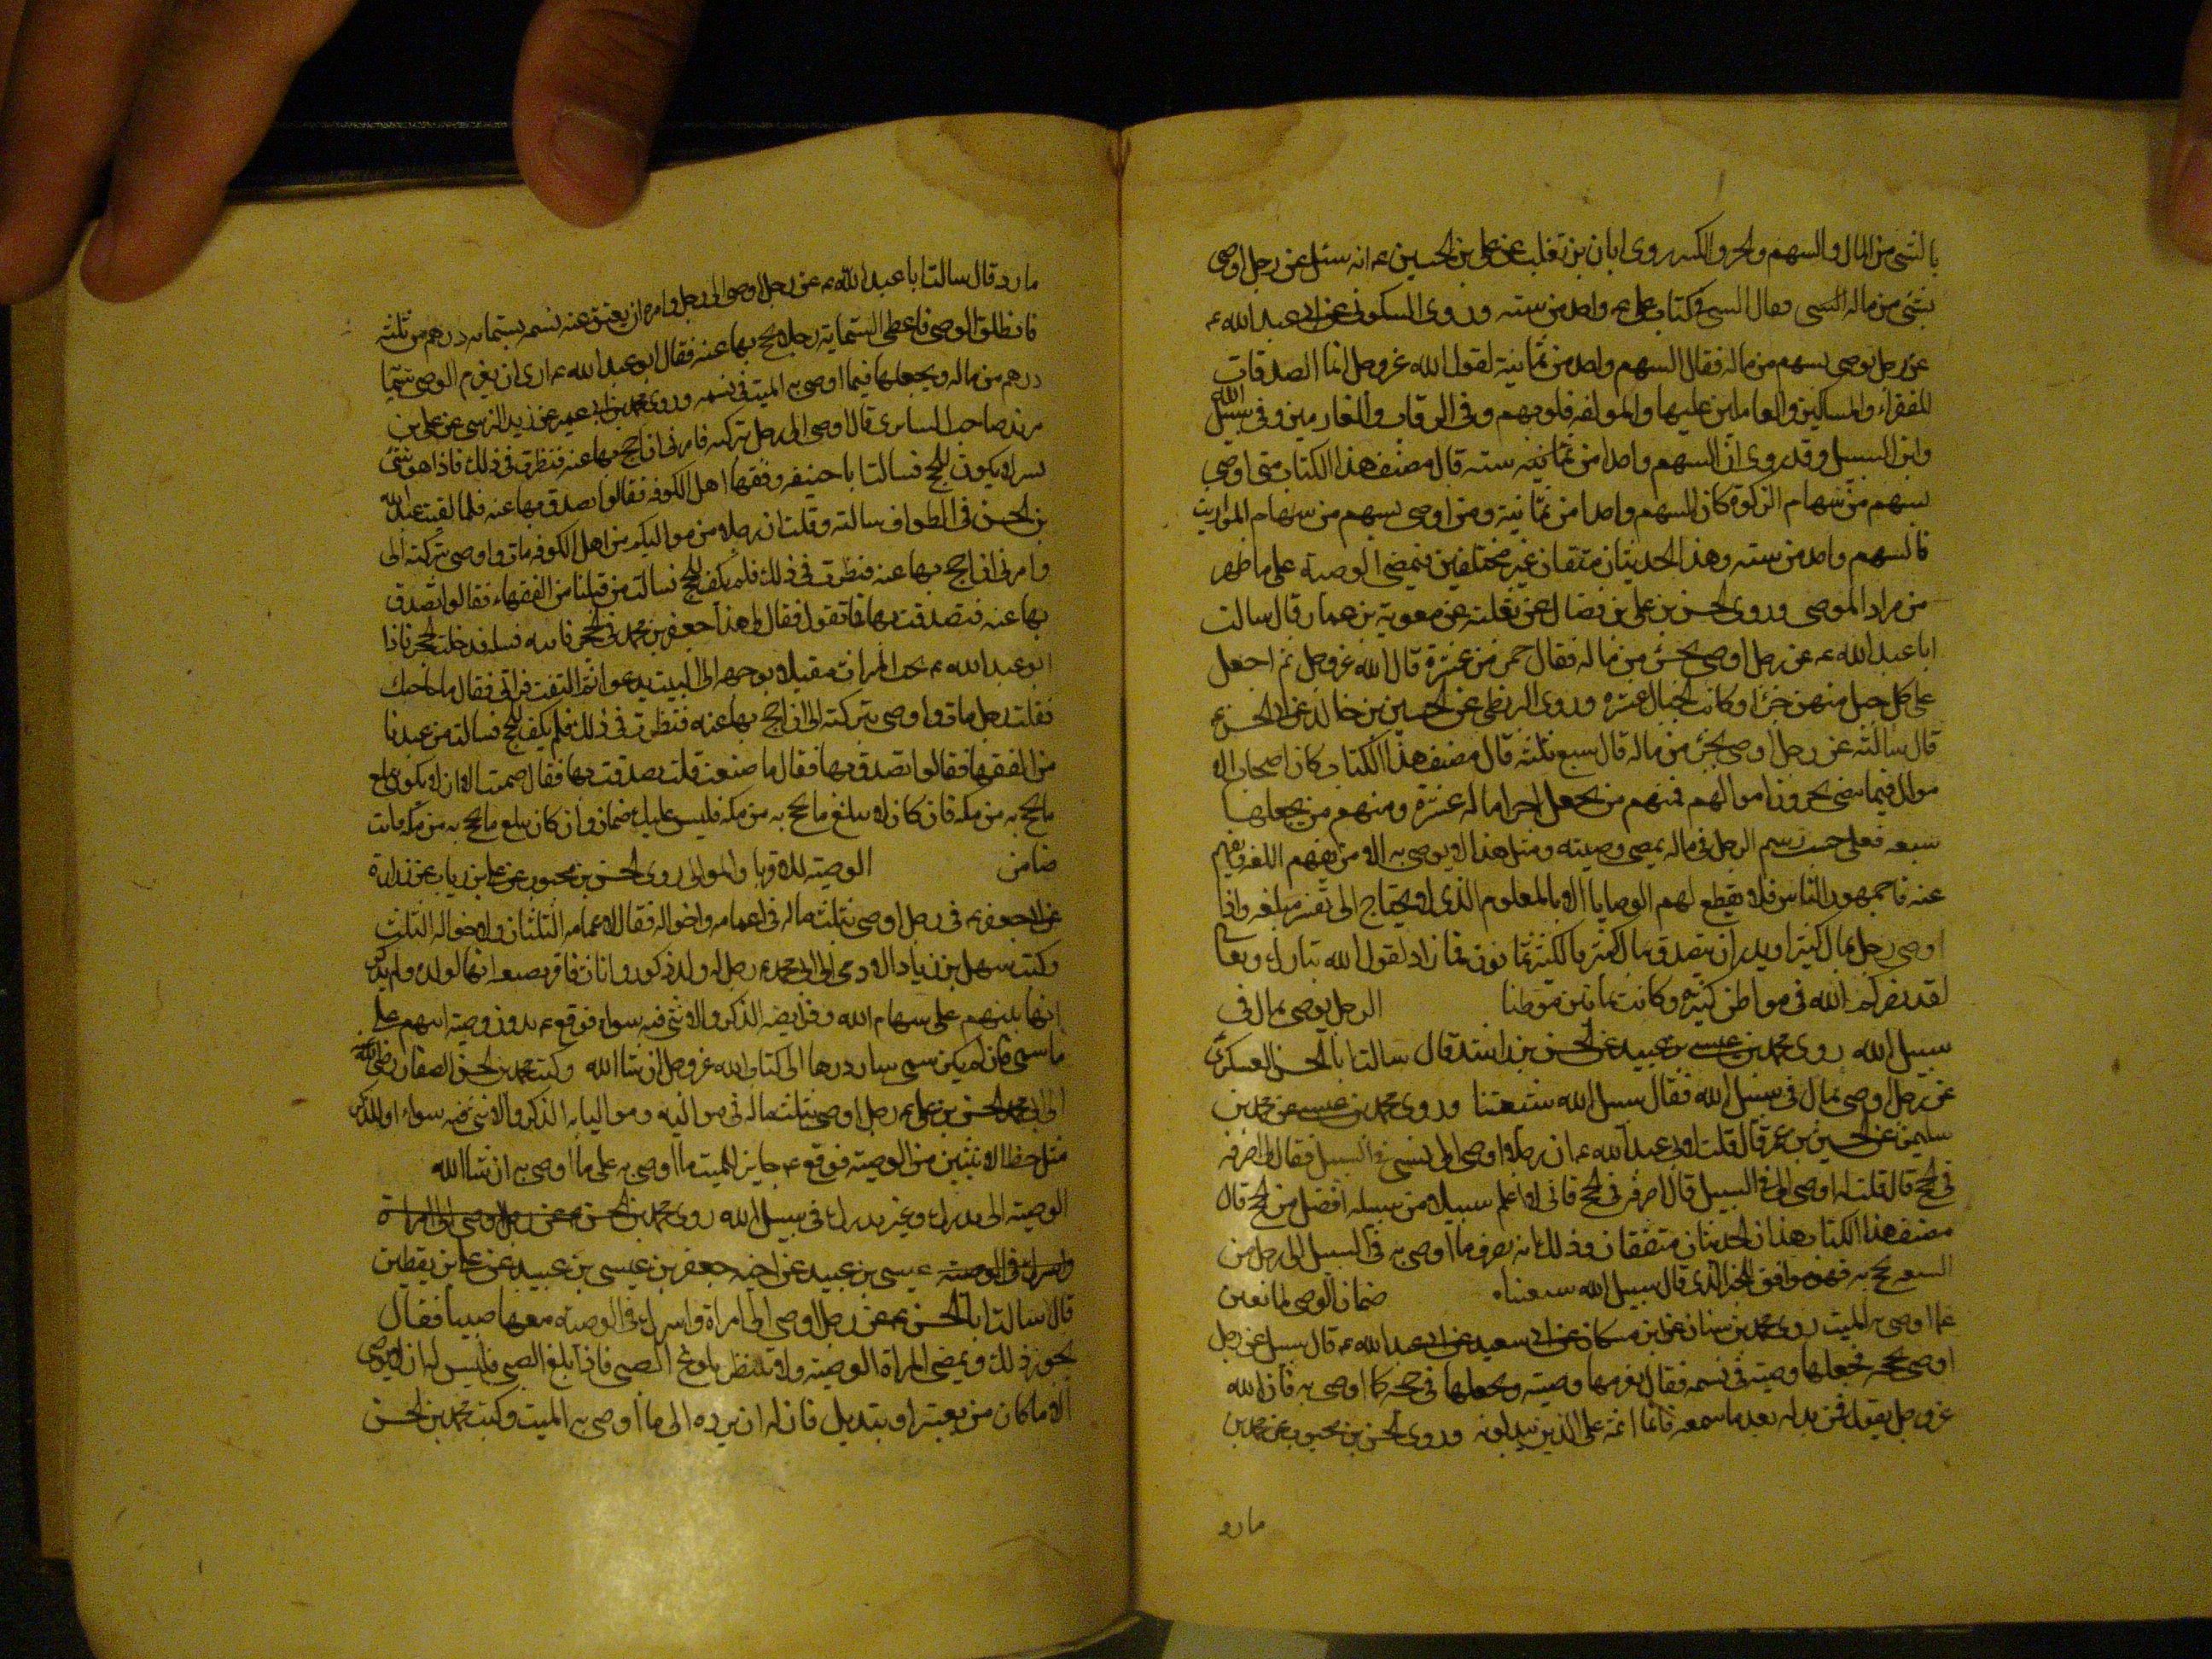 بالشئ من المال والسهم والجزء والكثير روى ابان بن تغلب عن علی بن الحسين ع انه سئل عن رجل اوصى
بشئ من ماله الشئ فقال الشئ فى كتاب على ع واحد من سته وروى السكونى عن ابى عبد الله ع
عن رجل يوصى بسهم من ماله فقال السهم واحد من ثمانية لقول الله عز وجل انما الصدقات
للفقراء والمساكين والعاملين عليها والمولفه قلوبهم وفى الرقاب والغارمين وفى سبيل الله
وابن السبيل وقد روى ان السهم واحد من سته قال مصنف هذا الكتاب متى اوصى
بسهم من سهام الزكوة كان السهم واحدا من ثمانية ومتى اوصى بسهم من سهام المواريث
فالسهم واحد من سته وهذا الحديثان متفقان غير مختلفين فتمضى الوصية على ما ظهر
من مراد الموصى وروى الحسن بن على بن فضال عن ثعلبة عن معوية بن عمار قال سالت
ابا عبد الله ع عن رجل اوصى بجزء من ماله فقال جزء من عشرة قال الله عز وجل ثم اجعل
على كل جبل منهن جزءا وكانت الجبال عشرة وروى البزنطى عن الحسين بن خالد عن ابى الحسن ع
قال سالته عن رجل اوصى بجزء من ماله قال سبع ثلثه قال مصنف هذا الكتاب كان اصحاب الا
موال فيما مضى يجزون اموالهم فمنهم من يجعل اجزاء ماله عشرة ومنهم من يجعلها
سبعه فعلى حسب رسم الرجل فى ماله يمضى وصيته ومثل هذا لا يوصى به الا من يفهم اللغه ويفهم
عنه فاما جمهور الناس فلا يقطع لهم الوصايا الا بالمعلوم الذى لا يحتاج الى تفسير مبلغه واذا
اوصى رجل بمال كثير او نذر ان يتصدق بمال كثير فالكثير ثمانون فما زاد لقول الله تبارك وتعالى
لقد نصركم الله فى مواطن كثيرة وكانت ثمانين موطنا الرجل يوصى بمال فى
سبيل الله روى محمد بن عيسى بن عبيد عن الحسن بن راشد قال سالت ابا الحسن العسكرى
عن رجل اوصى بمال فى سبيل الله فقال سبيل الله شيعتنا وروى محمد بن عيسى عن محمد بن
سليمن عن الحسين بن عمر قال قلت لابى عبد الله ع ان رجلا اوصى الى بشئ فى السبيل فقال لى اصرفه
فى الحج قال قلت له اوصى الى فى السبيل قال اصرفه فى الحج فانى لا اعلم سبيلا من سبله افضل من الحج قال
مصنف هذا الكتاب هذان الحديثان متفقان وذلك انه يصرف ما اوصى به فى السبيل الى رجل من
الشيعه يحج به فهو موافق للخبر الذى قال سبيل الله شيعتنا ضمان الوصى لما تغير
عما اوصى به الميت روى محمد بن سنان عن ابن مسكان عن ابى سعيد عن ابى عبد الله ع قال سئل عن رجل
اوصى بحجه فجعلها وصيه فى نسمه فقال يغرمها وصيه ويجعلها فى حجه كما اوصى به فان الله
عز وجل يقول فمن بدله بعد ما سمعه فانما اثمه على الذين يبدلونه وروى الحسن بن محبوب عن محمد بن
مارد
مارد قال سالت ابا عبد الله ع عن رجل اوصى الى رجل وامره ان يعتق عنه نسمه بستمائه درهم من ثلثه
فانطلق الوصى فاعطى الستماية رجلا يحج بها عنه فقال ابو عبد الله ع ارى ان يغرم الوصى ستمائة
درهم من ماله ويجعلها فيما اوصى به الميت فى نسمه وروى محمد بن ابى عمير عن زيد النرسى عن على بن
مزيد صاحب السابرى قال اوصى الى رجل بتركته فامرنى ان احج بها عنه فنظرت فى ذلك فاذا هو شئ
يسير لا يكون للحج فسالت ابا حنيفه وفقهاء اهل الكوفه فقالوا تصدق بها عنه فلما لقيت عبد الله
بن الحسن فى الطواف سالته وقلت ان رجلا من مواليكم من اهل الكوفه مات واوصى بتركته الى
وامرنى ان احج بها عنه فنظرت فى ذلك فلم يكف للحج فسالت من قبلنا من الفقهاء فقالوا تصدق
بها عنه فتصدقت بها فما تقول فقال لى هذا جعفر بن محمد فى الحجر فاته وسله فدخلت الحجر فاذا
ابو عبد الله ع تحت الميزاب مقبلا بوجهه الى البيت يدعو ثم التفت فرانى فقال ما حاجتك
فقلت رجل مات واوصى بتركته الى ان احج بها عنه فنظرت فى ذلك فلم يكف للحج فسالت من عندنا
من الفقهاء فقالوا تصدق بها فقال ما صنعت قلت تصدقت بها فقال ضمنت الا ان لا يكون يبلغ
ما يحج به من مكة فان كان لا يبلغ ما يحج به من مكة فليس عليك ضمان وان كان يبلغ ما يحج به من مكة فانت
ضامن الوصيه للاقرباء والموالى روى الحسن بن محبوب عن على بن رياب عن زرارة
عن ابى جعفر ع فى رجل اوصى بثلث ماله فى اعمامه واخواله فقال لاعمامه الثلثان ولاخواله الثلث
وكتب سهل بن زياد الادمى الى ابى محمد ع رجل له ولد ذكور واناث فاقر بضيعه انها لولده ولم يذكر
انها بينهم على سهام الله وفرايضه الذكر والانثى فيه سواء فوقع ع ينفذون وصية ابيهم على
ما سمى فان لم يكن سمى شيئا ردوها الى كتاب الله عز وجل ان شاء الله وكتب محمد بن الحسن الصفار رضى الله
الى ابى محمد الحسن بن على ع رجل اوصى بثلث ماله فى مواليه وموالياته الذكر والانثى فيه سواء او للذكر
مثل حظ الانثيين من الوصيه فوقع ع جايز للميت ما اوصى به على ما اوصى به ان شاء الله
الوصيه الى مدرك وغير مدرك فى سبيل الله روى محمد بن الحسن ع عن رجل اوصى الى امراة
واشرك فى الوصيه عيسى بن عبيد عن اخيه جعفر بن عيسى بن عبيد عن على بن يقطين
قال سالت ابا الحسن ع عن رجل اوصى الى امراة واشرك فى الوصيه معها صبيا فقال
يجوز ذلك وتمضى المراة الوصيه ولا تنتظر بلوغ الصبى فاذا بلغ الصبى فليس له ان لا يرضى
الا ما كان من تغيير او تبديل فان له ان يرده الى ما اوصى به الميت وكتب محمد بن الحسن